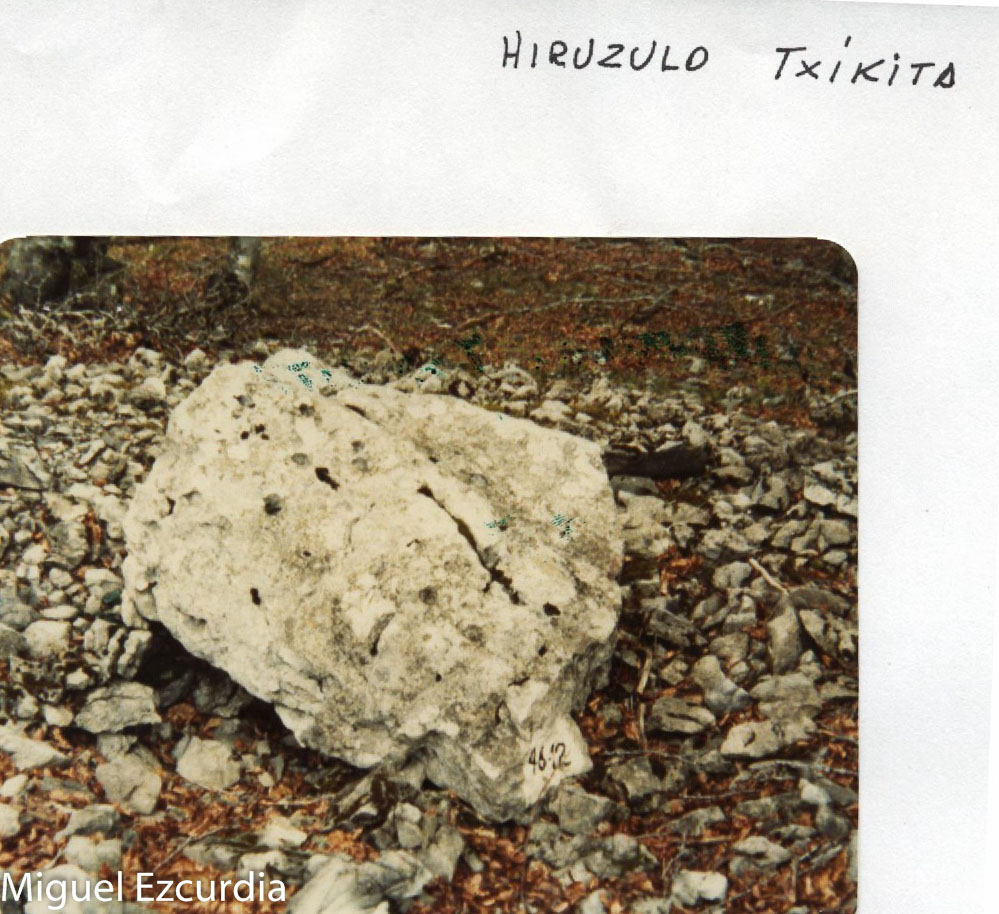 HIRUZULO TXIKITA
46-12
Miguel Ezcurdia